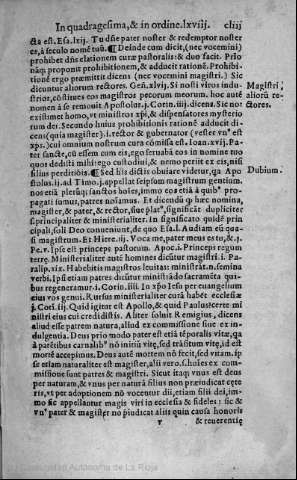 In quadragesima, & in ordine. lxviij. cliij
cta est. Esa. lxij. Tu dñe pater noster & redemptor noster
es, à seculo nomẽ tuũ. ¶ Deinde cum dicit, (nec vocemini)
prohibet dñs elationem curæ pastoralis: & duo facit. Prio
ponit prohibitionem, & addncit rationẽ. Prohibi-
tionẽ ergo præmittit dicens (nec vocemini magistri.) Sic
dicuntur aliorum rectores. Gen. xlvij. Si nosti viros indu-
strios, cõstitues eos magistros pecorum meorum. hoc aut
nomen à se remouit Apostolus. j. Corin. iiij. dicens. Sic nos
existimet homo, vt ministros xpi, & dispensatores mysterio
rum dei. Secundo huius prohibitionis rationẽ adducit di-
cens (quia magister) .i. rector & gubernator (vester vnus est
xps.) cui omnium nostrum cura cõmissa est. Ioan. xvij. Pa-
ter sancte, cũ essem cum eis, ego seruabã eos in nomine tuo
quos dedisti mihi: ego custodiui, & nemo periit ex eis, nisi
filius perditiõis. ¶ Sed his dictis obuiare videtur, qa Apo
stolus. ij. ad Timo. j. appellat seipsum magistrum gentium.
nos etiã plerosq; sanctos holes, immo eos etiã à quibus pro-
pagati sumus, patres nosamus. Et dicendũ q hæc nomina,
magister, & pater, & rector, siue plat, significãt dupliciter
s. principaliter & ministerialiter. In significatio quidẽ prin
cipali, soli Deo conueniunt, de quo Esa. l. Audiam eũ qua-
si magistrum. Et Hiere. iij. Voca me, pater meus es tu. & .j.
Pe. v. Ipse est princeps pastorum. Apoc. j. Princeps regum
terræ. Ministerialitẽr autẽ homines dicutur magistri. j. Pa-
ralip. xix. Habebitis magistros leuitas: ministrãdo .n. semina
verbi. Ipsi etiam patres dicutur ministrãdo sacramẽta quibus
bus regeneramur. i. Corin. iiij. In xpo Iesu per euangelium
eius vos genui. Rursus ministerialiter curã habẽt ecclesiæ
j. Cor. iij. Quid igitur est Apollo, & quid Paulus: certe mi
nistri eius cui credidistis. Aliter soluit Remigius, dicens
aliud esse patrem natura, aliud ex commissione siue ex in-
dulgentia. Deus prio modo pater est etiã tẽporalis vitæ, qã
à parẽtibus carnalibus nõ initiũ vitæ, sed trãsitum vitæ, id est
mortẽ accepimus. Deus autẽ mortem nõ fecit, sed vitam. ip
se etiam naturaliter est magister, alij vero. s. holes ex com-
missione sunt patres & magistri. Sicut itaq; vnus est deus
per naturam, & vnus per naturã filius non præiudicat cete
ris, vt per adoptionem nõ vocentur dii, etiam filii dei, im-
mo sic appellantur magis viri in ecclesia & fideles: sic &
vnus pater & magister nõ piudicat aliis quin causa honoris
v & reuerentię
Magistri,
aliorũ re-
ctores.
Dubium.
Comunidad Autónoma de La Rioja